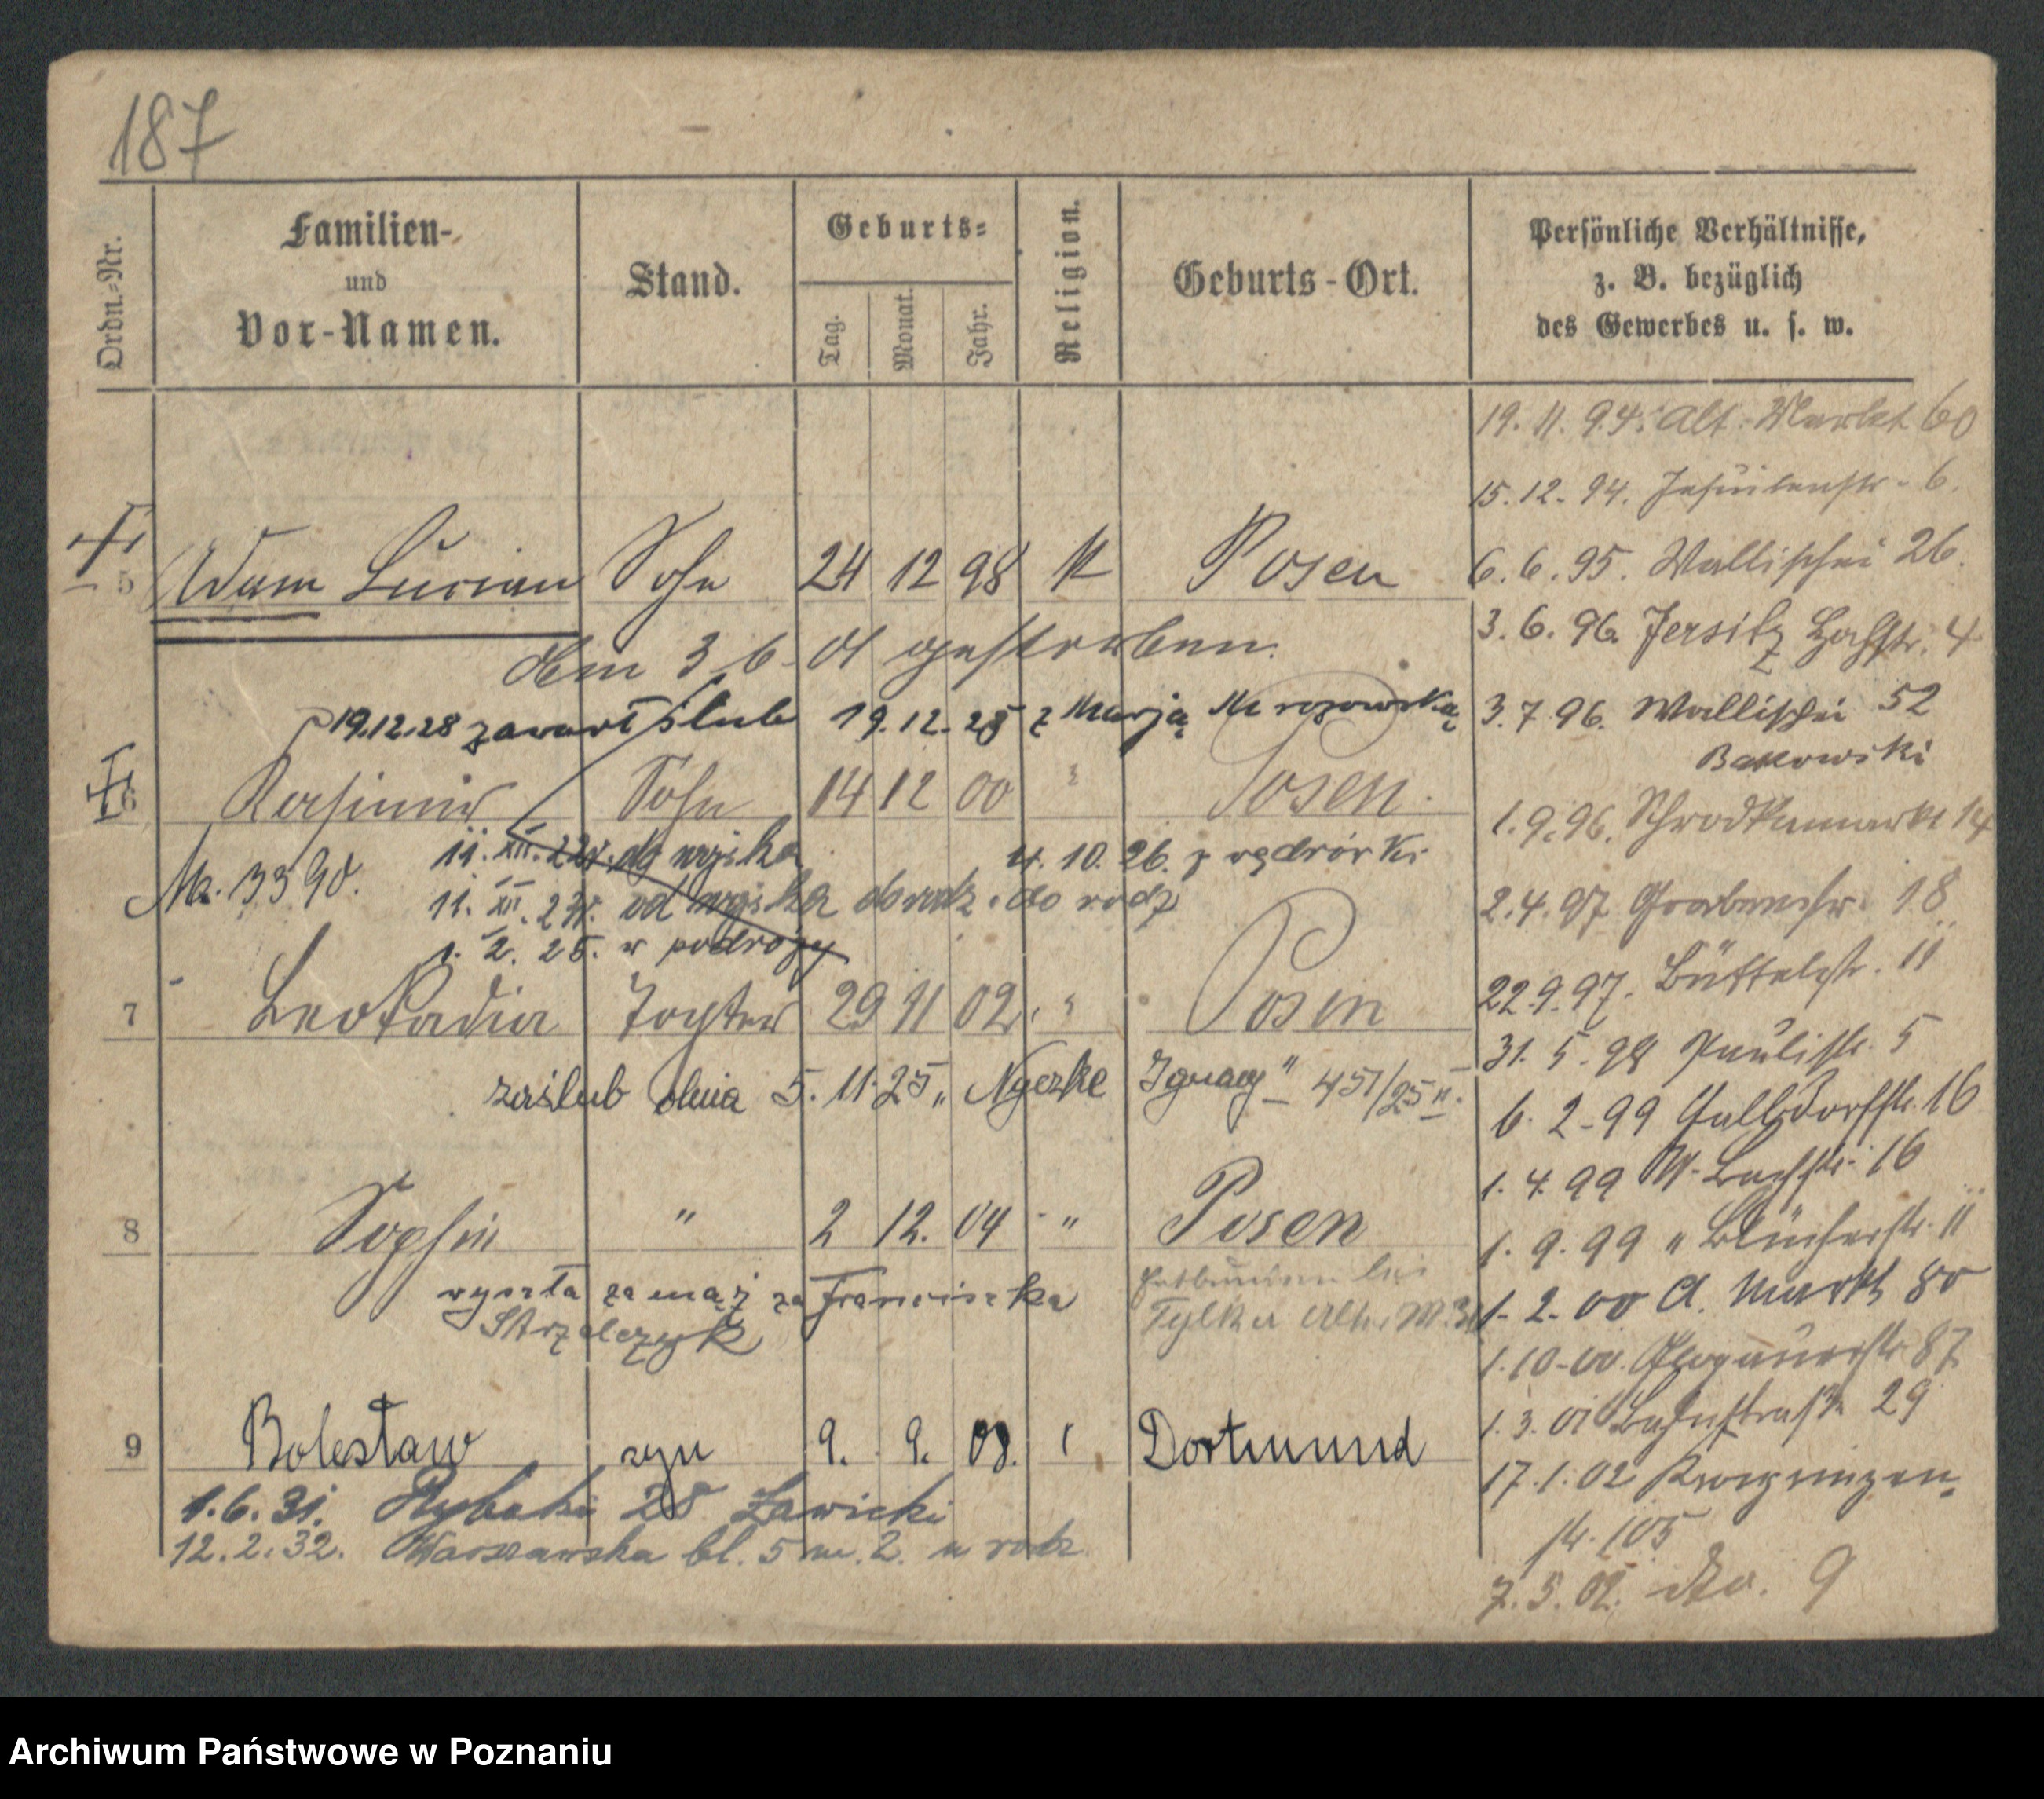 187
Ordn.-Nr.
Familien- und Vor-Namen.
Stand.
Geburts=
Tag.
Monat.
Jahr.
Religion.
Geburts-Ort.
Persönliche Verhältnisse,
z. B. bezüglich
des Gewerbes u. s. w.
19. 11. 94. Alt. Markt 60
15. 12. 94. Jesuitenstr. 6.
5 Adam Lucian Sohn 24 12 98 K Posen
6. 6. 95. Wallischei 26.
3. 6. 96. Jersitz 4
den 3 6. 01 gestorben.
19.12.28 zawarł ślub 19.12.28 z Marją Mrozowską
3. 7 96. Wallischei 52
Bakowski
6 Kasimir Sohn 14 12 00 Posen.
1. 9. 96. Schrodkamarkt 14
11. XII. 22r. do wojska 4. 10. 26. z wędrówki
11. XII. 23r. od wojska do rodz
2. 4. 97 Grabenstr. 18
1. 2. 25. w podróży
22.9.97. Büttelstr. 11
7 Leokadia Tochter 29 11 02 " Posen
31. 5. 98 Paulistr. 5
zaślub dnia 5. 11. 25 Ignacy 451/25
6. 2. 99 16
1. 4. 99 W. Bachstr. 16
8 Sophie " 2 12. 04 " Posen
1. 9. 99 " Blücherstr. 11
wyszła za mąż za Franciszka
Strzelczyk
1. 2. 00 A. Markt 80
1. 10. 00. Glogauerstr. 87
1. 3. 01 Bahnstraße 29
9 Bolesław syn 9. 9. 08. Dortmund
17. 1. 02 Kronprinzen-
str. 105
1. 6. 31. Rybaki 28 Ławicki
12. 2. 32. Warszawska bl. 5 m. 2. u rodz.
7. 5. 02. dto. 9
Archiwum Państwowe w Poznaniu